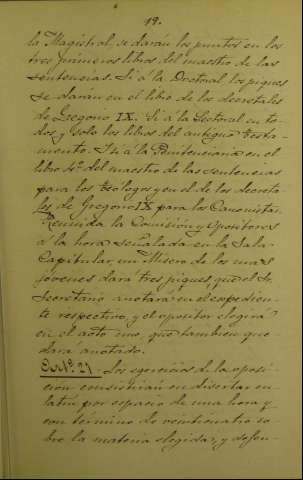 19.
la Magistral, se darán los puntos en los
tres primeros libros del maestro de las
sentencias. Si á la Doctoral los piques
se darán en el libro de las decretales
de Gregorio IX. Si á la Lectoral en to-
dos y solo los libros del antiguo testa-
mento. I si á la Penitenciaria en el
libro 4º del maestro de las sentencias
para los teologos y en el de los decreta-
les de Gregorio IX para los Canonistas.
Reunida la Comisión y Opositores
á la hora señalada en la Sala
Capitular un Misero de los mas
jóvenes dará tres piques, que el Sr.
Secretario anotará en el expedien-
te respectivo, y el opositor elegirá
en el acto uno, que tambien que-
dará anotado.
Artº 21. Los ejercicios de la oposi-
cion consistirán en disertar en
latin por espacio de una hora y
con término de veinticuatro so-
bre la materia elegida, y defen-